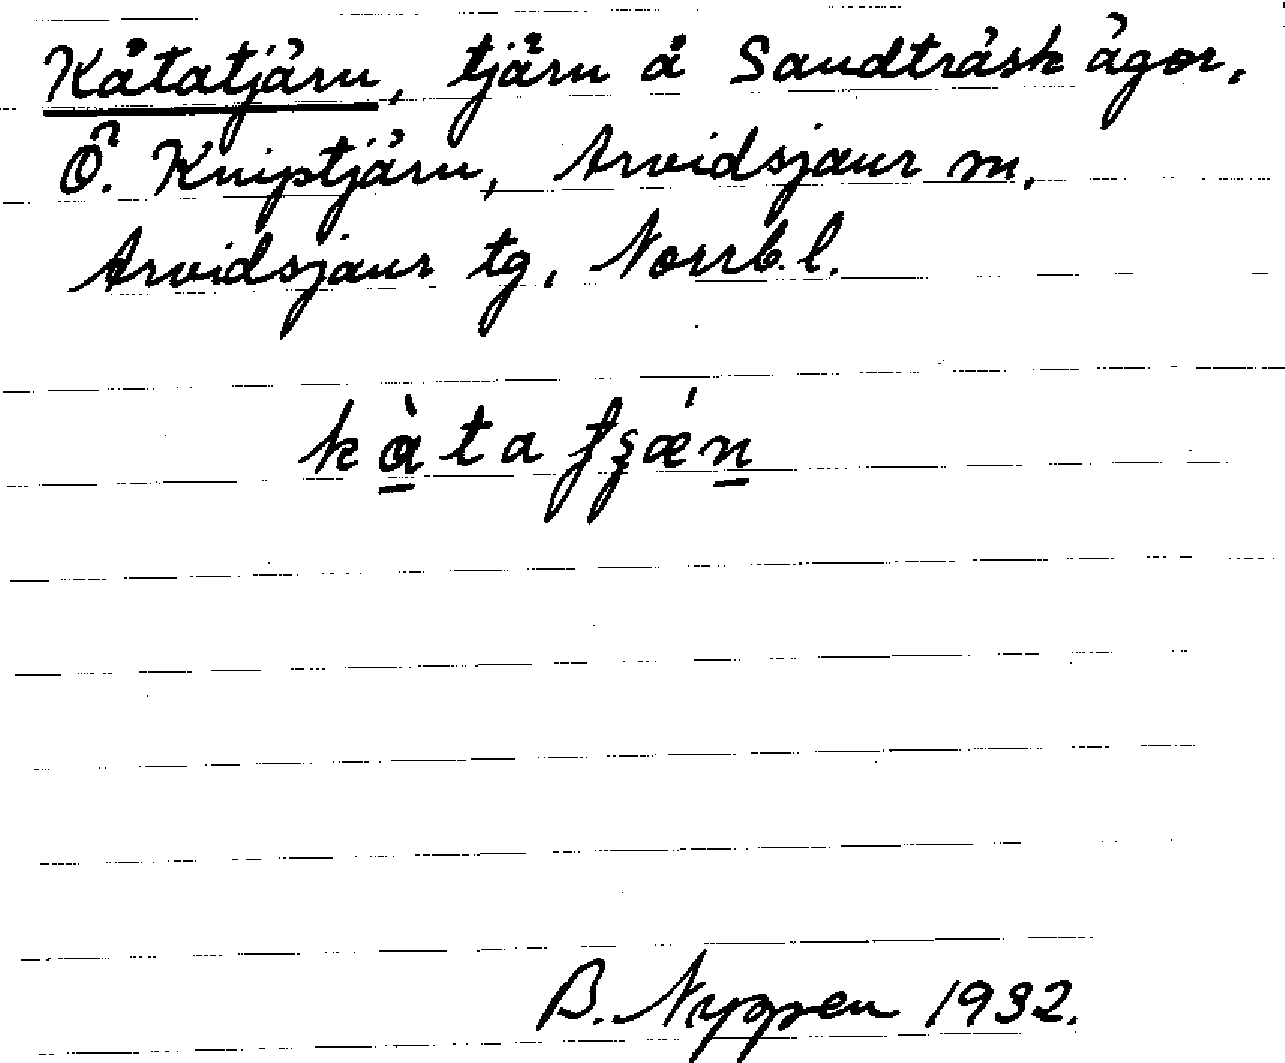 Kåtatjärn, tjärn å Sandträsk ägor,
Ö. Kniptjärn, Arvidsjaur sn,
Arvidsjaur tg, Norrb. l.
kàta tʂǽn
B. Nyppen 1932.